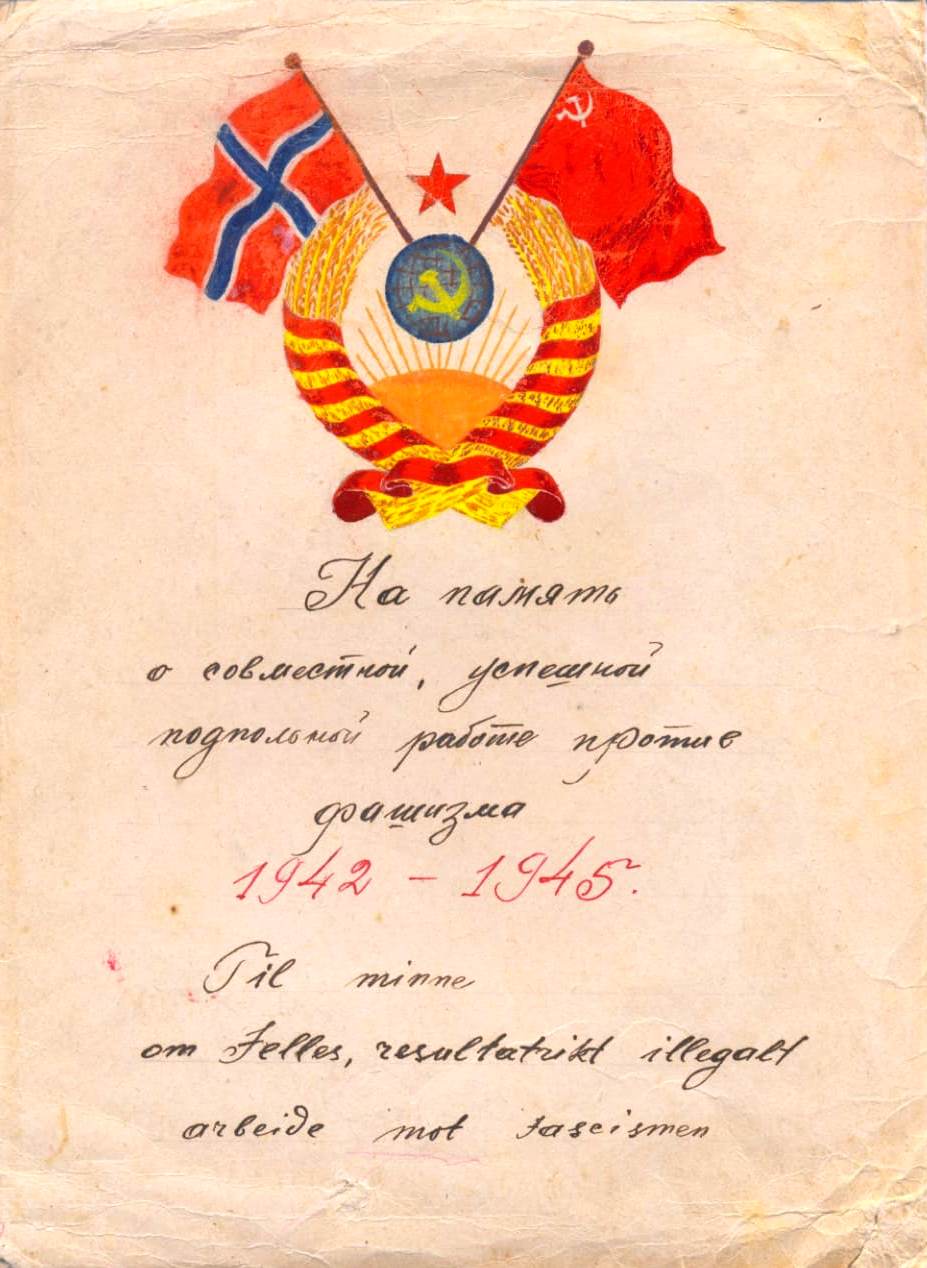 На память
о совместной, успешной
подпольной работе против
фашизма
1942 - 1945.
Til minne
om Felles, resultatrikt illegalt
arbeide mot fascismen